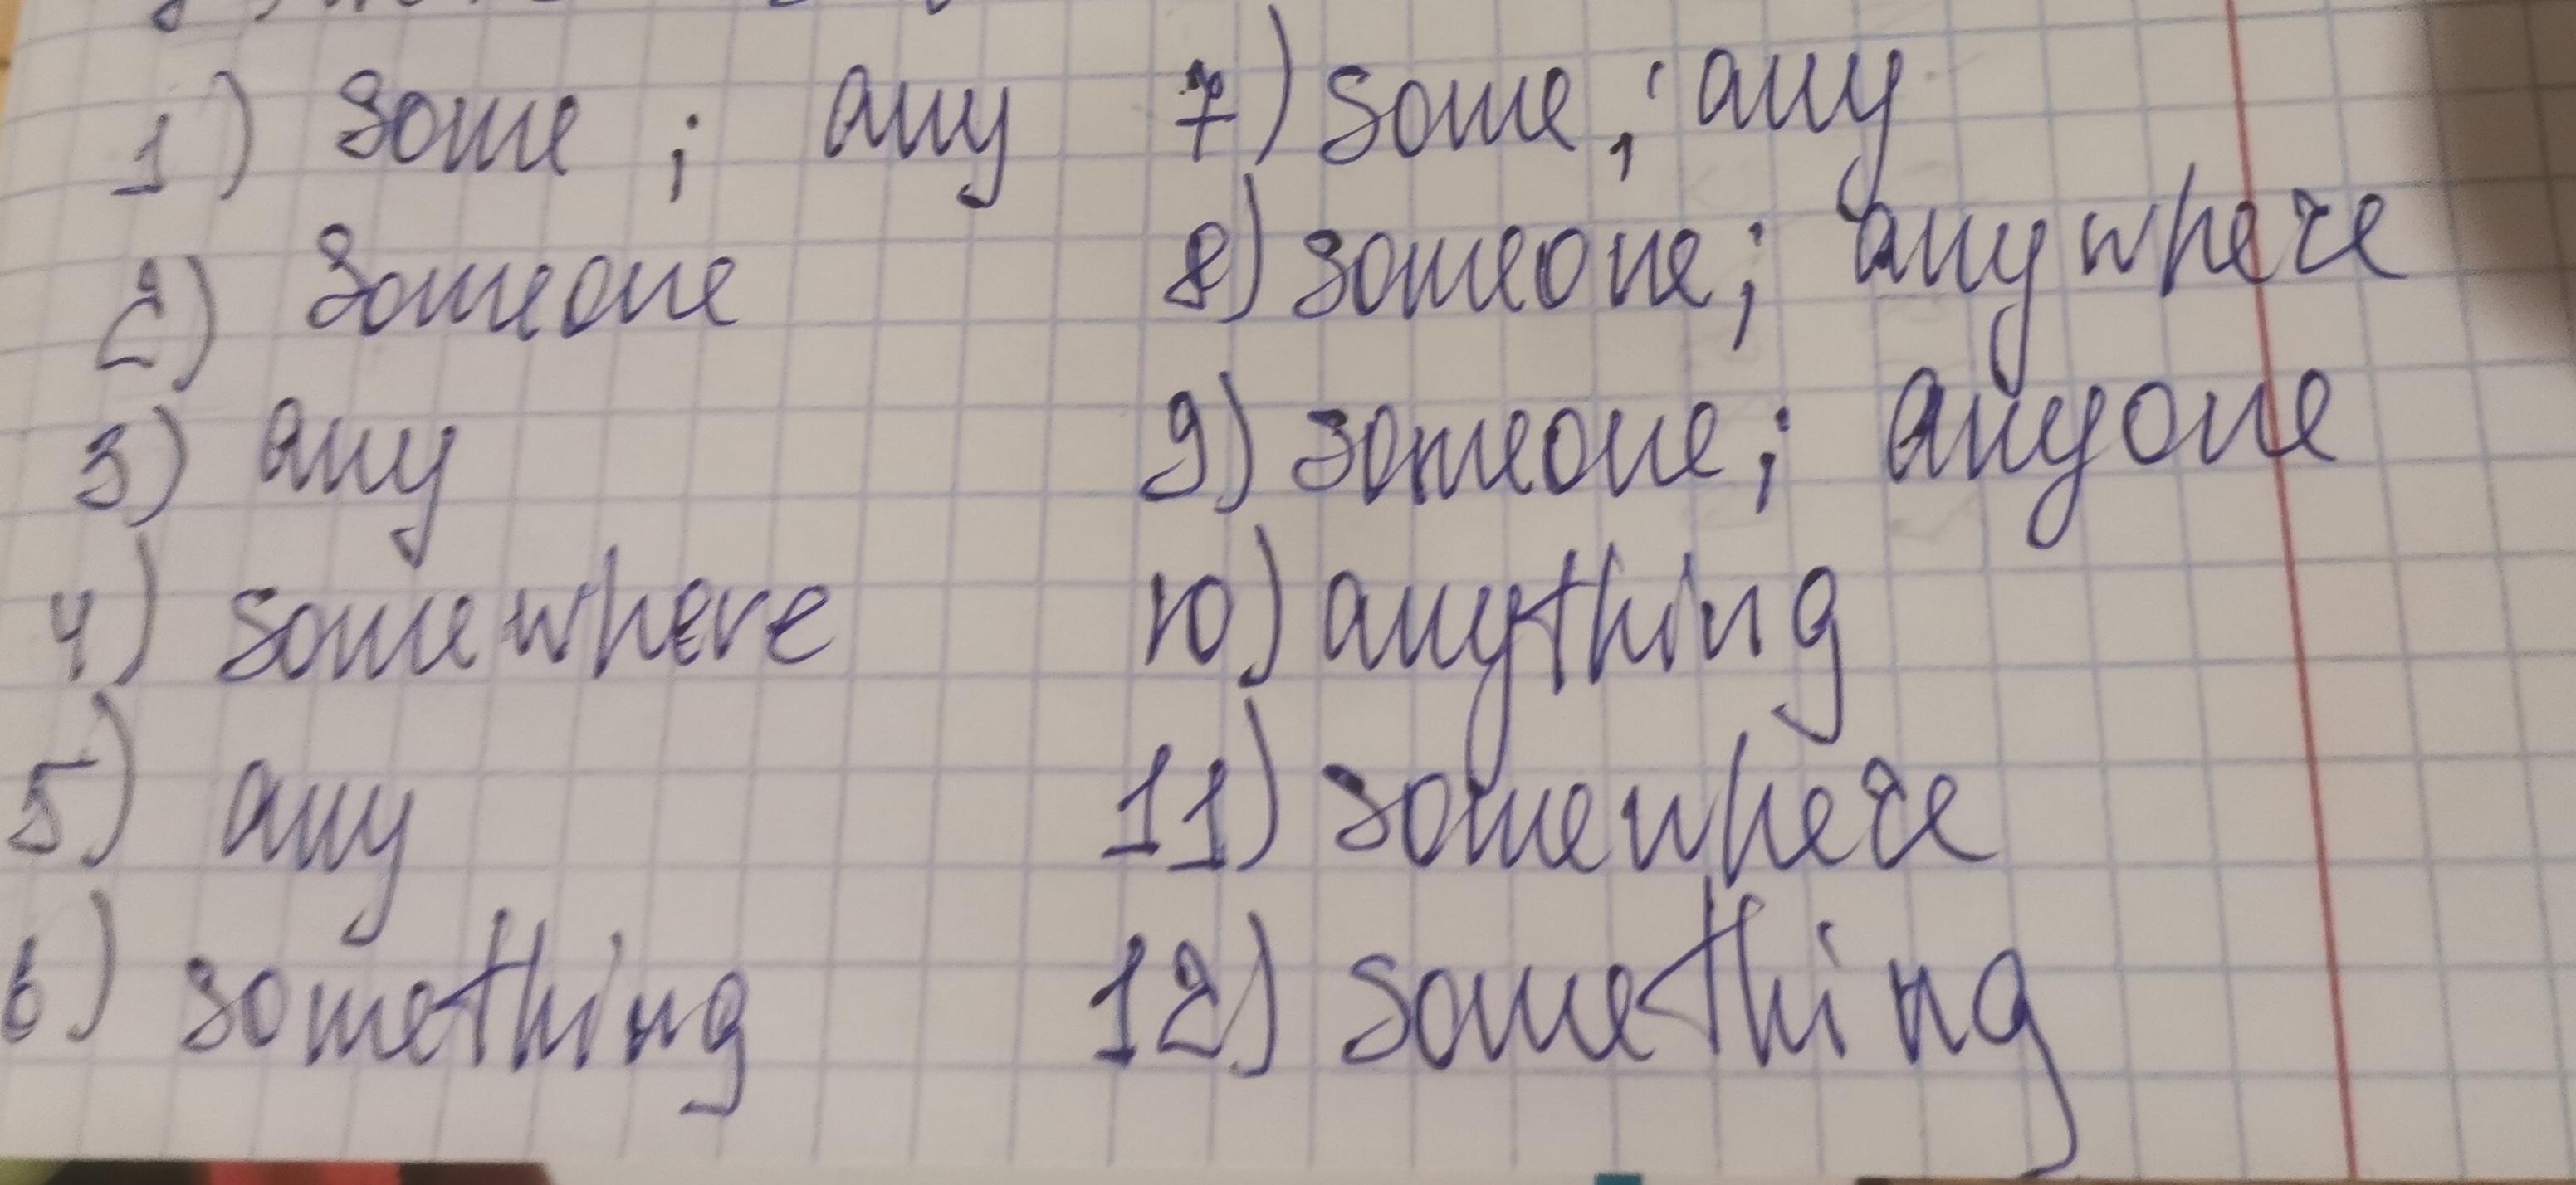 1) some ; any
2) someone
3) any
4) somewhere
5) any
6) something
7) some ; any
8) someone; anywhere
9) someone; anyone
10) anything
11) somewhere
12) something